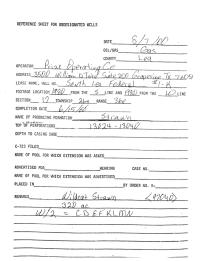 REFERENCE SHEET FOR UNDESIGNATED WELLS
DATE 6/7/
OIL/GAS Gas
COUNTY Lea
OPERATOR Prize Operating Co
ADDRESS 3500 William D Tate Suite 200 Grapevine Tx
LEASE NAME, WELL NO. South Lea Federal #1-R
FOOTAGE LOCATION 1980 FROM THE S LINE AND 1980 FROM THE W LINE
SECTION TOWNSHIP RANGE
COMPLETION DATE
NAME OF PRODUCING FORMATION Strawn
TOP OF PERFORATIONS 13024 - 13040
DEPTH TO CASING SHOE
C-123 FILED
NAME OF POOL FOR WHICH EXTENSION WAS ASKED
ADVERTISED FOR HEARING CASE NO.
NAME OF POOL FOR WHICH EXTENSION WAS ADVERTISED
PLACED IN BY ORDER NO. R-
REMARKS Wildcat Strawn
320 ac
W/2 = CDEFKLMN